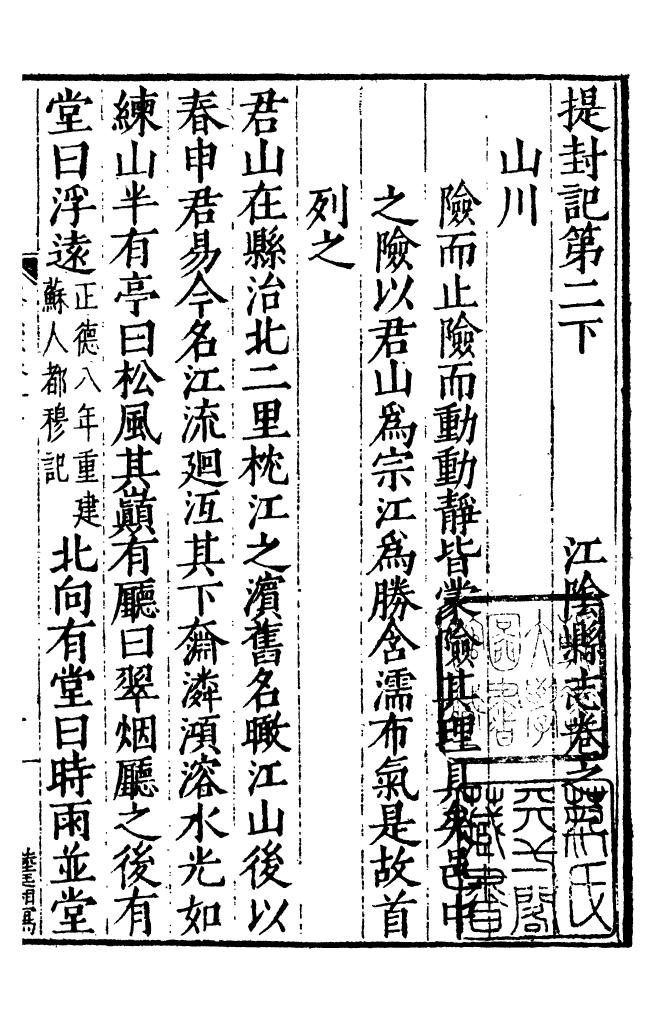 提封記第二下　江陰縣志卷之
山川
險而止險而動動靜皆蒙險其理具矣邑中
之險以君山爲宗江爲勝含濡布氣是故首
列之
君山在縣治北二里枕江之濵舊名瞰江山後以
春申君易今名江流廻沍其下奫潾澒溶水光如
練山半有亭曰松風其巔有廳曰翠烟廳之後有
堂曰浮遠正德八年重建蘇人都穆記北向有堂曰時雨並堂
天一閣
藏書